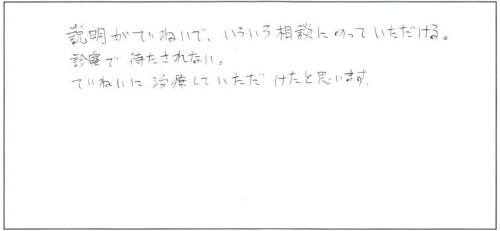 説明がていねいで、いろいろ相談にのっていただける。
診察で待たされない。
ていねいに治療していただけたと思います。